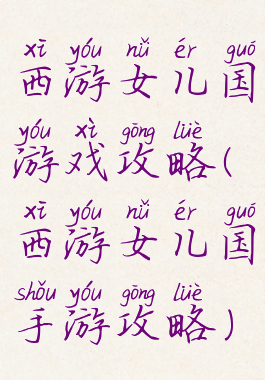 xī yóu nǚ ér guó
西游女儿国
yóu xì gōng lüè
游戏攻略(
xī yóu nǚ ér guó
西游女儿国
shǒu yóu gōng lüè
手游攻略)